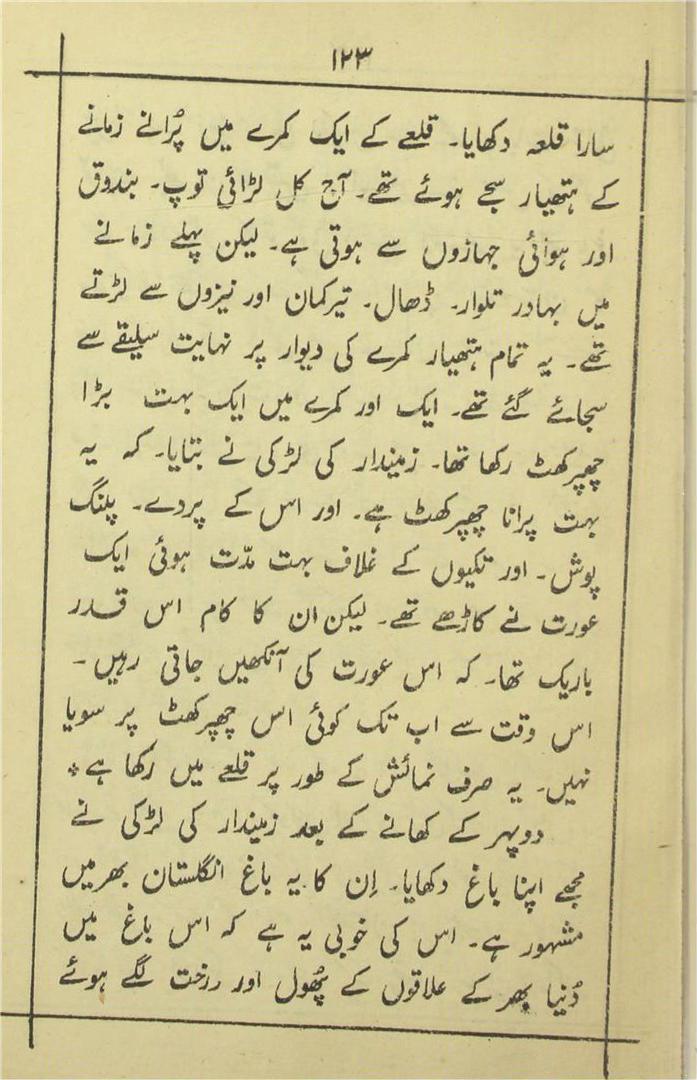 ۱۲۳
سارا قلعہ دکھایا۔ قلعے کے ایک کمرے میں پُرانے زمانے
کے ہتھیار سجے ہوئے تھے۔ آج کل لڑائی توپ۔ بندوق
اور ہوائی جہازوں سے ہوتی ہے۔ لیکن پہلے زمانے
میں بہادر تلوار۔ ڈھال۔ تیرکمان اور نیزوں سے لڑتے
تھے۔ یہ تمام ہتھیار کمرے کی دیوار پر نہایت سلیقے سے
سجائے گئے تھے۔ ایک اور کمرے میں ایک بہت بڑا
چھپرکھٹ رکھا تھا۔ زمیندار کی لڑکی نے بتایا۔ کہ یہ
بہت پرانا چھپرکھٹ ہے۔ اور اس کے پردے۔ پلنگ
پوش۔ اور تکیوں کے غلاف بہت مدّت ہوئی ایک
عورت نے کاڑھے تھے۔ لیکن ان کا کام اس قدر
باریک تھا۔ کہ اس عورت کی آنکھیں جاتی رہیں۔
اس وقت سے اب تک کوئی اس چھپرکھٹ پر سویا
نہیں۔ یہ صرف نمائش کے طور پر قلعے میں رکھا ہے٭
دوپہر کے کھانے کے بعد زمیندار کی لڑکی نے
مجھے اپنا باغ دکھایا۔ اِن کا یہ باغ انگلستان بھر میں
مشہور ہے۔ اس کی خوبی یہ ہے کہ اس باغ میں
دُنیا بھر کے علاقوں کے پھُول اور درخت لگے ہوئے